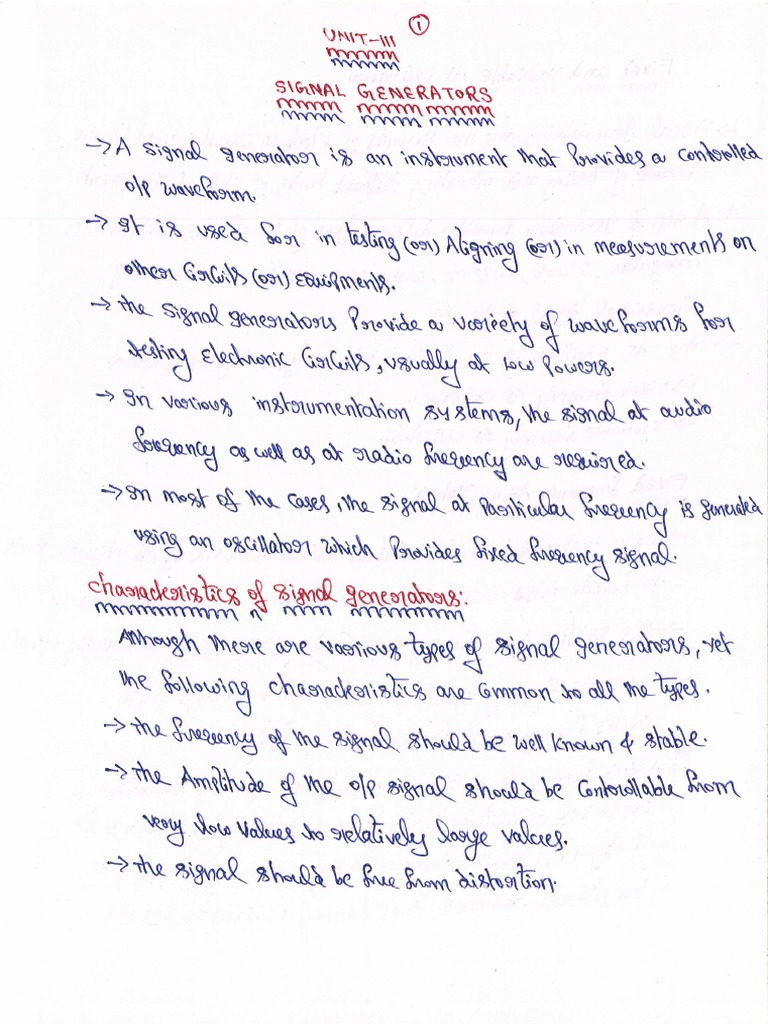 ①
UNIT-III
SIGNAL GENERATORS
→ A signal generator is an instrument that provides a controlled
o/p waveform.
→ It is used for in testing (or) Aligning (or) in measurements on
other circuits (or) Equipments.
→ The signal generators provide a variety of waveforms for
testing Electronic circuits, usually at low powers.
→ In various instrumentation systems, the signal at audio
frequency as well as at radio frequency are required.
→ In most of the cases, the signal at particular frequency is generated
using an oscillator which provides fixed frequency signal.
characteristics of signal generators:
Although there are various types of signal generators, yet
the following characteristics are common to all the types.
→ The frequency of the signal should be well known & stable.
→ The Amplitude of the o/p signal should be controllable from
very low values to relatively large values.
→ The signal should be free from distortion.